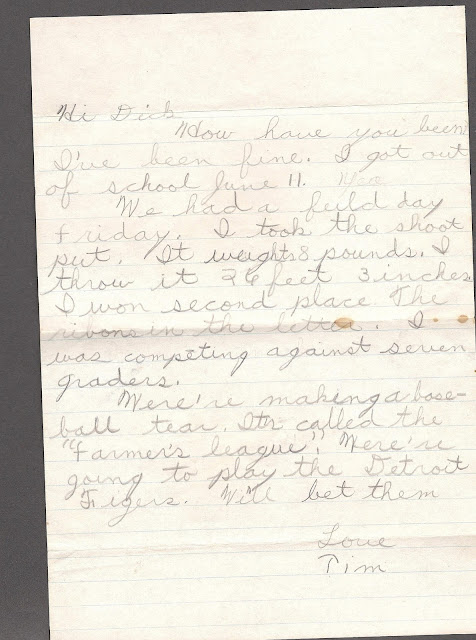 Hi Dick
How have you been
I've been fine. I got out
of school June 11.
We had a feild day
friday. I took the shoot
put. It weights 8 pounds. I
throw it 26 feet 3 inches.
I won second place The
ribons in the letter. I
was competing against seven
graders.
Were're making a base-
ball team. It's called the
"Farmer's league". Were're
going to play the Detroit
Tigers. We'll bet them
Love
Tim